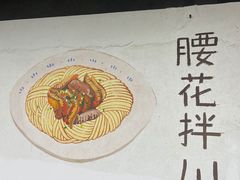 腰花拌川